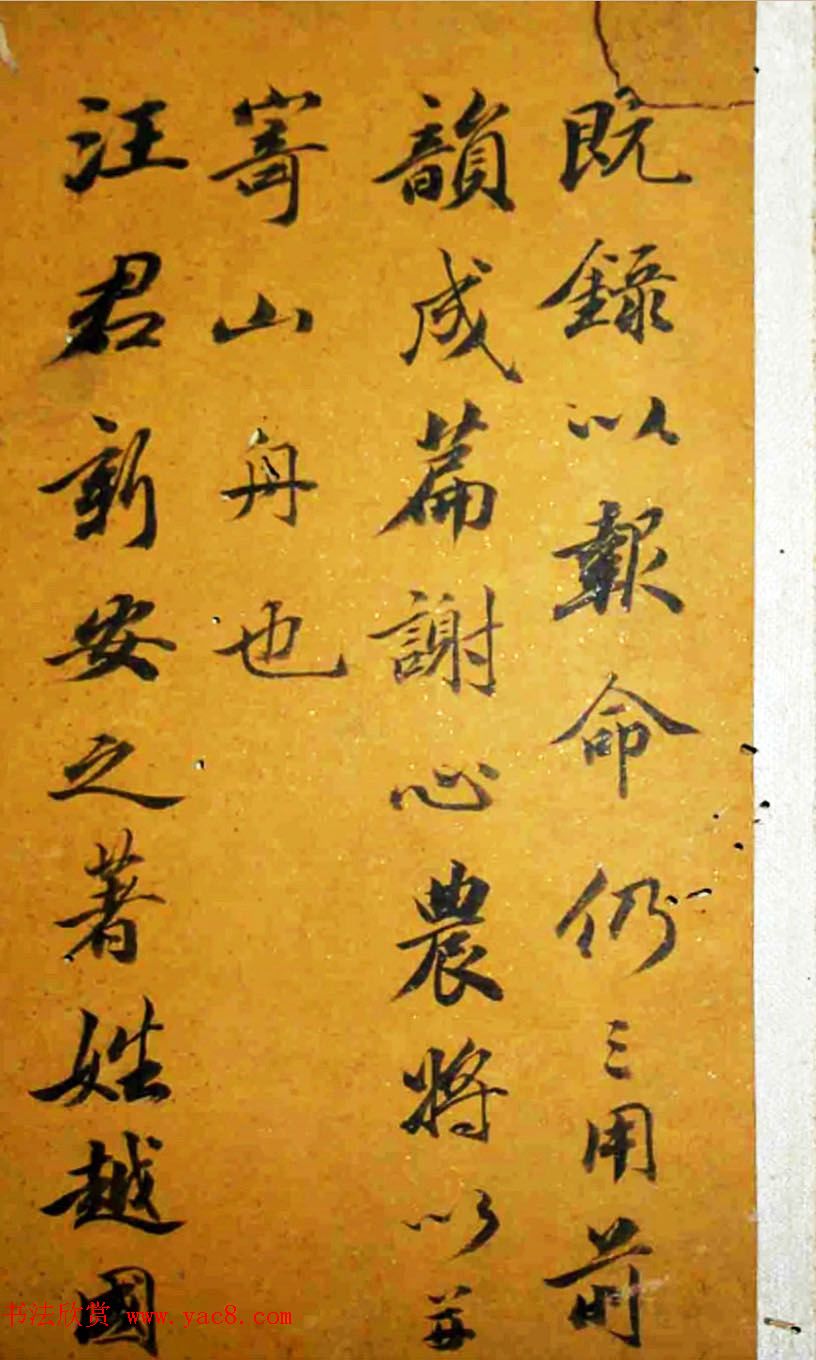 既録以報命仍三用前
韻成篇謝心農將以並
寄山舟也
汪君新安之著姓越國
书法欣赏 www.yac8.com